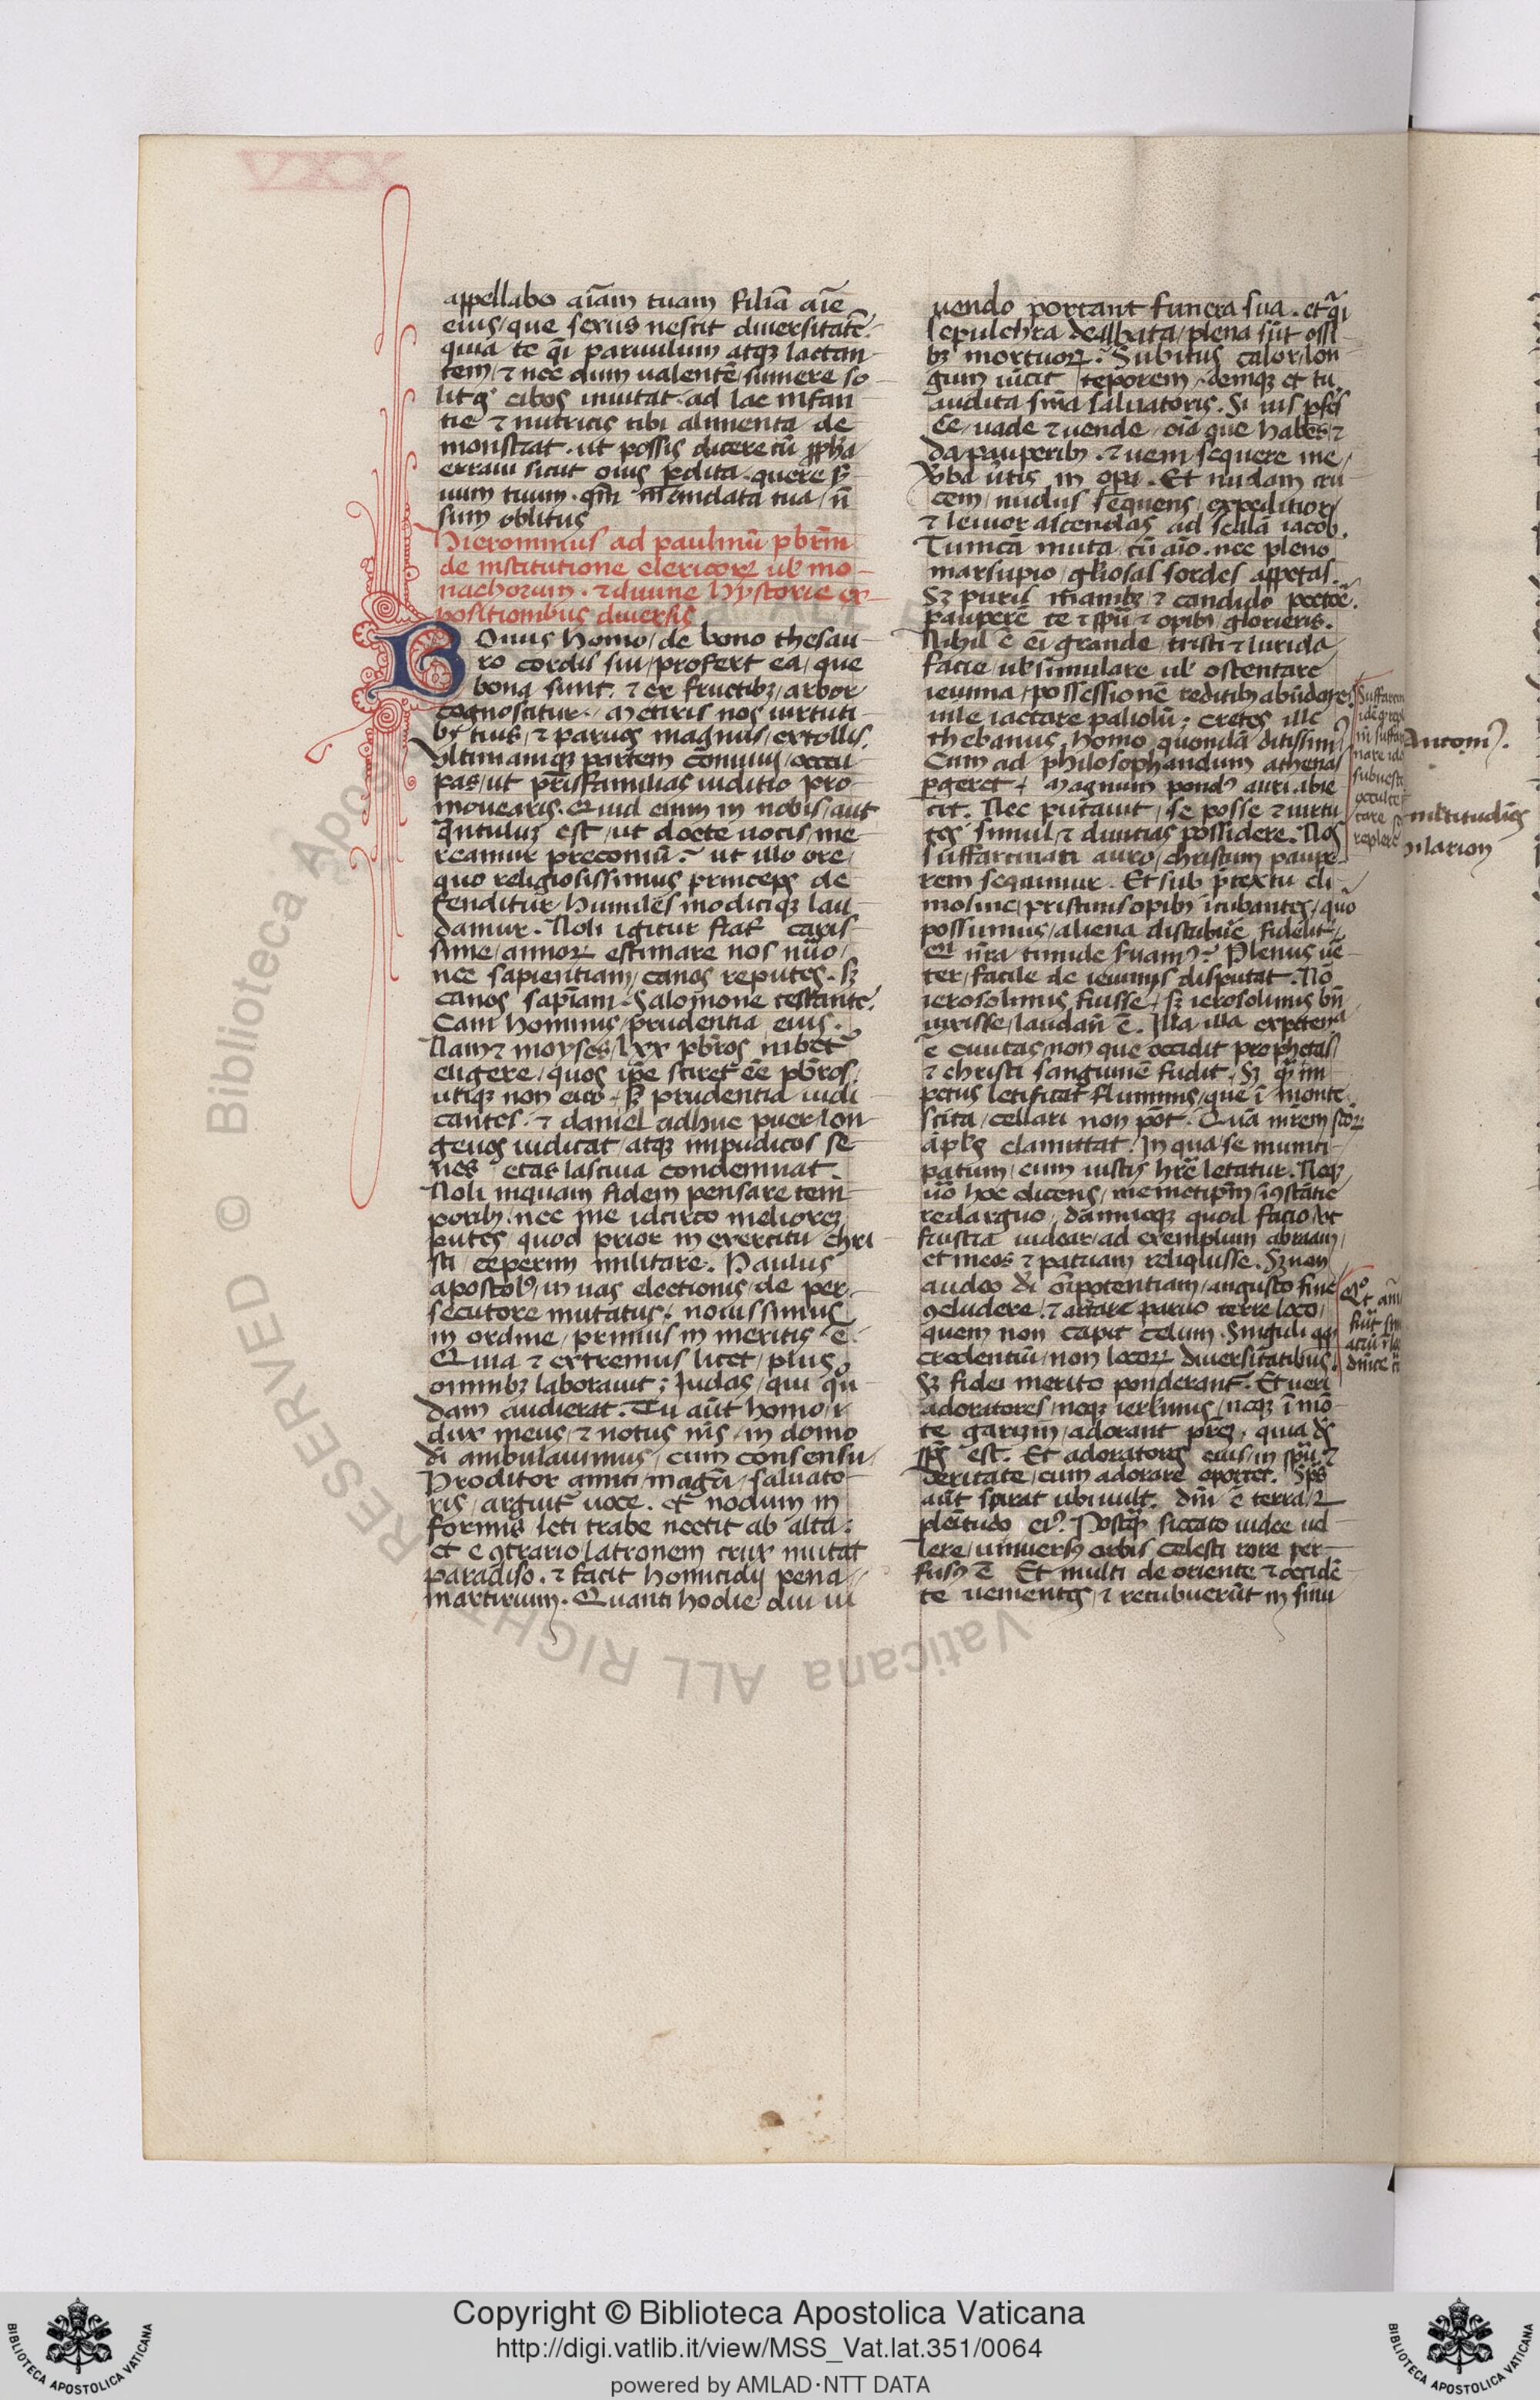 appellabo aīam tuam filiā aīe
eius/ que sexus nescit diuersitatē.
quia te q̄i paruulum atqꝫ lactan-
tem/ ⁊ nec dum ualentē sumere so-
litꝰ cibos inuitat ad lac infan
tie ⁊ nutricis tibi alimenta de
monstrat. ut possis dicere cū ꝓpha
erraui sicut ouis ꝑdita. quere ẜ
uum tuum. qm̄ mandata tua/ n̄
sum oblitus
Hieronimus ad paulinū pbrm̄
de institutione clericoꝝ ul̓ mo-
nachorum. ⁊ diuine hystorie ex-
positionibus diuersis
BOnus homo/ de bono thesau-
ro cordis sui/ profert ea/ que
bona sunt. ⁊ ex fructibꝫ/ arbor
cognoscitur. Metiris nos uirtuti-
bꝫ tuis/ ⁊ paruos magnus/ extollis.
Vltimamqꝫ partem conuiuij/ occu-
pas/ ut pr̄isfamilias iuditio pro-
mouearis. Quid enim in nobis/ aut
q̄ntuluꝫ est/ ut docte uocis/ me
reamur preconiū? ut illo ore/
quo religiosissimus princeps de-
fenditur/ humiles modiciqꝫ lau-
damur. Noli igitur frāt caris-
sime/ annoꝝ estimare nos nūo/
nec sapientiam/ canos reputes. sꝫ
canos sapīam. Salomone testante.
Cani hominis/ prudentia eius.
Nam ⁊ moyses/ lxx pbr̄os iubet
eligere/ quos ip̄e sciret eē pbr̄os/
utiqꝫ non euo. sꝫ prudentia iudi
cantes. ⁊ daniel adhuc puer/ lon-
geuos iudicat/ atqꝫ impudicos se
nes etas lasciua condemnat.
Noli inquam fidem pensare tem-
poribꝫ. nec me idcirco meliorem
putes quod prior in exercitu chri-
sti/ ceperim militare. Paulus
apostolꝰ/ in uas electionis/ de per-
secutore mutatus: nouissimus
in ordine/ primus in meritis ē.
Quia ⁊ extremus licet/ plus
omnibꝫ laborauit: Judas/ qui qn̄
dam audierat. Tu aūt homo/
dux meus/ ⁊ notus m̄s/ in domo
dī ambulauimus/ cum consensu/
Proditor amici/ magr̄i/ saluato-
ris/ arguit̄ uoce. et nodum in
formis leti trabe nectit ab alta:
et e ꝯtrario/ latronem crux mutat
paradiso. ⁊ facit homicidij pena/
martirium. Quanti hodie diu ui
uendo portant funera sua. et q̄i
sepulchra dealbata/ plena sūt ossi
bꝫ mortuoꝝ. Subitus calor/ lon-
gum uicit teporem. deniqꝫ et tu
audita snīa saluatoris. Si uis pfc̄s
eē/ uade ⁊ uende oīa que habes/ ⁊
da pauperibꝫ. ⁊ ueni sequere me/
Ꝟba ūtis in opa. Et nudam cru-
cem/ nudus sequens/ expeditior/
⁊ leuior ascendas ad scalā iacob.
Tunicā muta cū aīo. nec pleno
marsupio/ gl̓iosas sordes appetas.
Sꝫ puris manibꝫ ⁊ candido pectoē.
pauperē te ⁊ spū ⁊ opibꝫ glorieris.
Nihil ē eī grande/ tristi ⁊ lurida
facie/ ul̓ simulare ul̓ ostentare
ieiunia/ possessionē reditibꝫ abūdare.
uile iactare paliolū: cretes ille
thebanus/ homo quondā ditissimꝰ
Cum ad philosophandum athenas
ꝑgeret/ magnum pondꝰ auri abie-
cit. Nec putauit/ se posse ⁊ uirtu
tes simul ⁊ diuitias possidere. Nos
suffarcinati auro/ christum paupe-
rem sequimur. Et sub p̄textu eli-
mosine/ pristinis opibꝫ īcubantes/ quō
possumus/ aliena distribuē fidelit̄/
q̄i nr̄a timide ẜuamꝰ? Plenus uē-
ter/ facile de ieiunijs disputat. Nō
ierosolimis fuisse/ sꝫ ierosolimis bn̄
uixisse/ laudan̄ ē. Illa illa expetena
ē ciuitas/ non que occidit prophetas/
⁊ christi sanguinē fudit. Sꝫ quā im-
petus letificat fluminis/ que ī monte
scita/ cellari non pōt. Quā mr̄em sc̄oꝝ
apl̓s clamittat. In qua se munici-
patum/ cum iustis hr̄e letatur. Neqꝫ
uō hoc dicens/ memetipm̄/ īꝯstātie
redarguo/ damnoqꝫ quod facio/ ut
frustra uidear/ ad exemplum abraam/
et meos ⁊ patriam reliquisse. Sꝫ non
audeo dī oīpotentiam/ angusto fine
ꝯcludere/ ⁊ artare paruo terre loco/
quem non capit celum. Singuli qꝗ
credentiū/ non locoꝝ diuersitatibus.
Sꝫ fidei merito ponderant̄. Et ueri
adoratores/ neqꝫ ierl̓imis/ neqꝫ ī mō-
te garizim/ adorant prē/ quia ds̄
sps̄ est. Et adoratores eius/ in spū ⁊
ueritate/ eum adorare oportet. Sps̄
aūt spirat ubi uult. dn̄i ē terra/ ⁊
plēitudo eiꝰ. Postqꝫ siccato iudee uel-
lere/ uniuersꝫ orbis celesti rore per-
fusꝫ ē Et multi de oriente ⁊ occidē-
te uenientes/ ⁊ recubuerūt in sinu
Antoniꝰ.
multitudies
hilarion
RESERVED © Biblioteca Apos
Vaticana ALL RIGHT
Copyright © Biblioteca Apostolica Vaticana
http://digi.vatlib.it/view/MSS_Vat.lat.351/0064
powered by AMLAD·NTT DATA
BIBLIOTECA APOSTOLICA VATICANA
BIBLIOTECA APOSTOLICA VATICANA